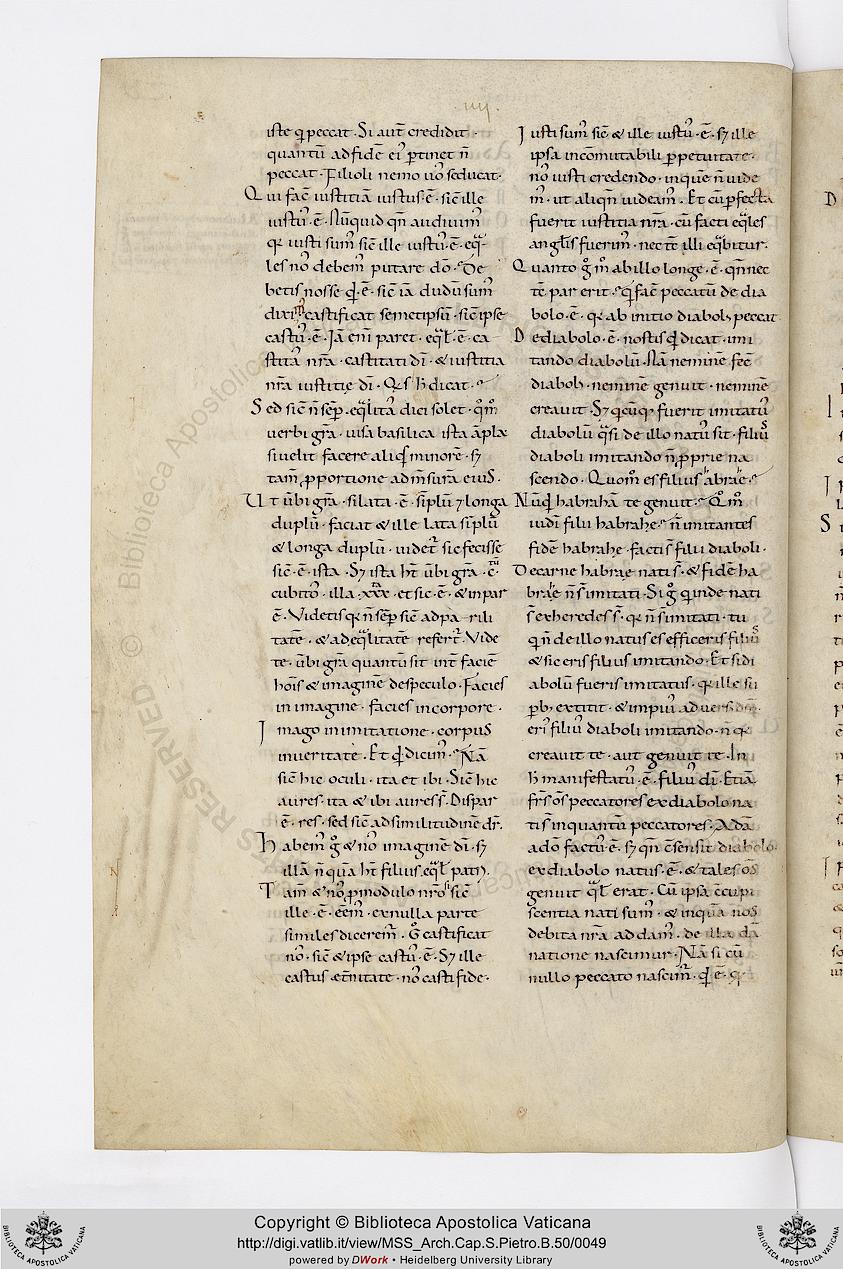 iiij.
iste q̄ peccat. Si aut̄ credidit.
quantū ad fidē ei᷒ ꝑtinet n̄
peccat. Filioli nemo uos seducat.
Qui fac̄ iustitiā iustus. ē. sic̄ ille
iust᷒. ē. Nūquid qn̄ audiuim᷒
qꝛ iusti sum᷒ sic̄ ille iust᷒. ē. eq̄-
les no᷒ debem᷒ putare dō. De
betis nosse qđ. ē. sic̄ iā dudū sum
dixim᷒ castificat semetipsū. sic̄ ipse
cast᷒. ē. Iā eni᷒ paret. eq̄l. ē. ca
stitas nr̄a. castitati dī. & iustitia
nr̄a iustitię dī. Qs h̄ dicat.
Sed sic̄ n̄ sēp. eq̄lita᷒ dici solet. qm̄
uerbi gr̄a. uisa basilica ista āpla
si uelit facere aliqđ minorē. sꝫ
tam̄ ꝓportione ad m̄surā eius.
Ut ūbi gr̄a. si lata. ē. sīplū ⁊ longa
duplū. faciat & ille lata sīplū
& longa duplū. uidet᷒ sic fecisse
sic̄. ē. ista. Sꝫ ista ht̄ ūbi gr̄a. c̄.
cubito᷒. illa. xxx. et sic. ē. & inpar
ē. Videtis qꝛ n̄ sēp sic̄ ad pa rili
tatē. & ad eq̄litatē refert᷒. Vide
te. ūbi gr̄a quantū sit int̄ faciē
hoīs & imaginē de speculo. Facies
in imagine. facies in corpore.
Imago in imitatione. corpus
in ueritate. Et qđ dicim᷒. Nā
sic̄ hic oculi. ita et ibi. Sic̄ hic
aures. ita & ibi aures s̄. Dispar
ē. res. sed sic̄ ad similitudinē dr̄.
Habem᷒ ḡ & no᷒ imaginē dī. sꝫ
illā n̄ quā ht̄ filius eq̄l patri.
Tam̄ & no᷒ ꝓ modulo nr̄o n̄ sic̄
ille. ē. eēm᷒. ex nulla parte
similes dicerem᷒. G̊ castificat
no᷒. sic̄ & ipse cast᷒. ē. Sꝫ ille
castus ęt̄nitate. no᷒ casti fide.
Iusti sum᷒ sic̄ & ille iust᷒. ē. sꝫ ille
ipsa incōmutabili ꝑpetuitate.
no᷒ iusti credendo. in quē n̄ uide
m᷒. ut aliqn̄ uideam᷒. Et cū ꝑfecta
fuerit iustitia nr̄a. cū facti eq̄les
angl̄is fuerim᷒. nec t̄c illi eq̄bitur.
Quanto ḡ m᷒ ab illo longe. ē. qn̄ nec
t̄c par erit. q̄ fac̄ peccatū de dia
bolo. ē. qꝛ ab initio diabol᷒ peccat
De diabolo. ē. nostis qđ dicat. imi
tando diabolū. Nā neminē fec̄
diabol᷒. neminē genuit. neminē
creauit. Sꝫ qcūqꝫ fuerit imitat᷒
diabolū q̄si de illo nat᷒ sit. fili᷒
diaboli imitando n̄ ꝓprie na
scendo. Quom᷒ es filius abrae.
Nūqđ habrahā te genuit. Qm̄
iudi᷒ filii habrahę. n̄ imitantes
fidē habrahę. facti s̄ filii diaboli.
De carne habrae nati s̄. & fidē ha
brae n̄ s̄ imitati. Si ḡ q̄ inde nati
s̄ exheredes s̄. qꝛ n̄ s̄ imitati. tu
q̄ n̄ de illo natus es efficeris fili᷒
& sic eris filius imitando. Et si di
abolū fueris imitatus. qꝛ ille su
ꝑb᷒ extitit. & impi᷒ aduers᷒ dm̄.
eri᷒ fili᷒ diaboli imitando. n̄ qꝛ
creauit te. aut genuit te. In
h̄ manifestat᷒. ē. fili᷒ dī. Etiā.
fr̄s oс̄ peccatores ex diabolo na
ti s̄ inquantū peccatores. Adā
a dō fact᷒. ē. sꝫ qn̄ c̄sensit diabolo.
ex diabolo natus. ē. & tales os̄
genuit q̄l erat. Cū ipsa c̄cupi
scentia nati sum᷒. & in qua nos
debita nr̄a addam᷒. de illa dā
natione nascimur. Nā si cū
nullo peccato nascim᷒. qđ ē. q̄
Copyright © Biblioteca Apostolica Vaticana
http://digi.vatlib.it/view/MSS_Arch.Cap.S.Pietro.B.50/0049
powered by DWork • Heidelberg University Library